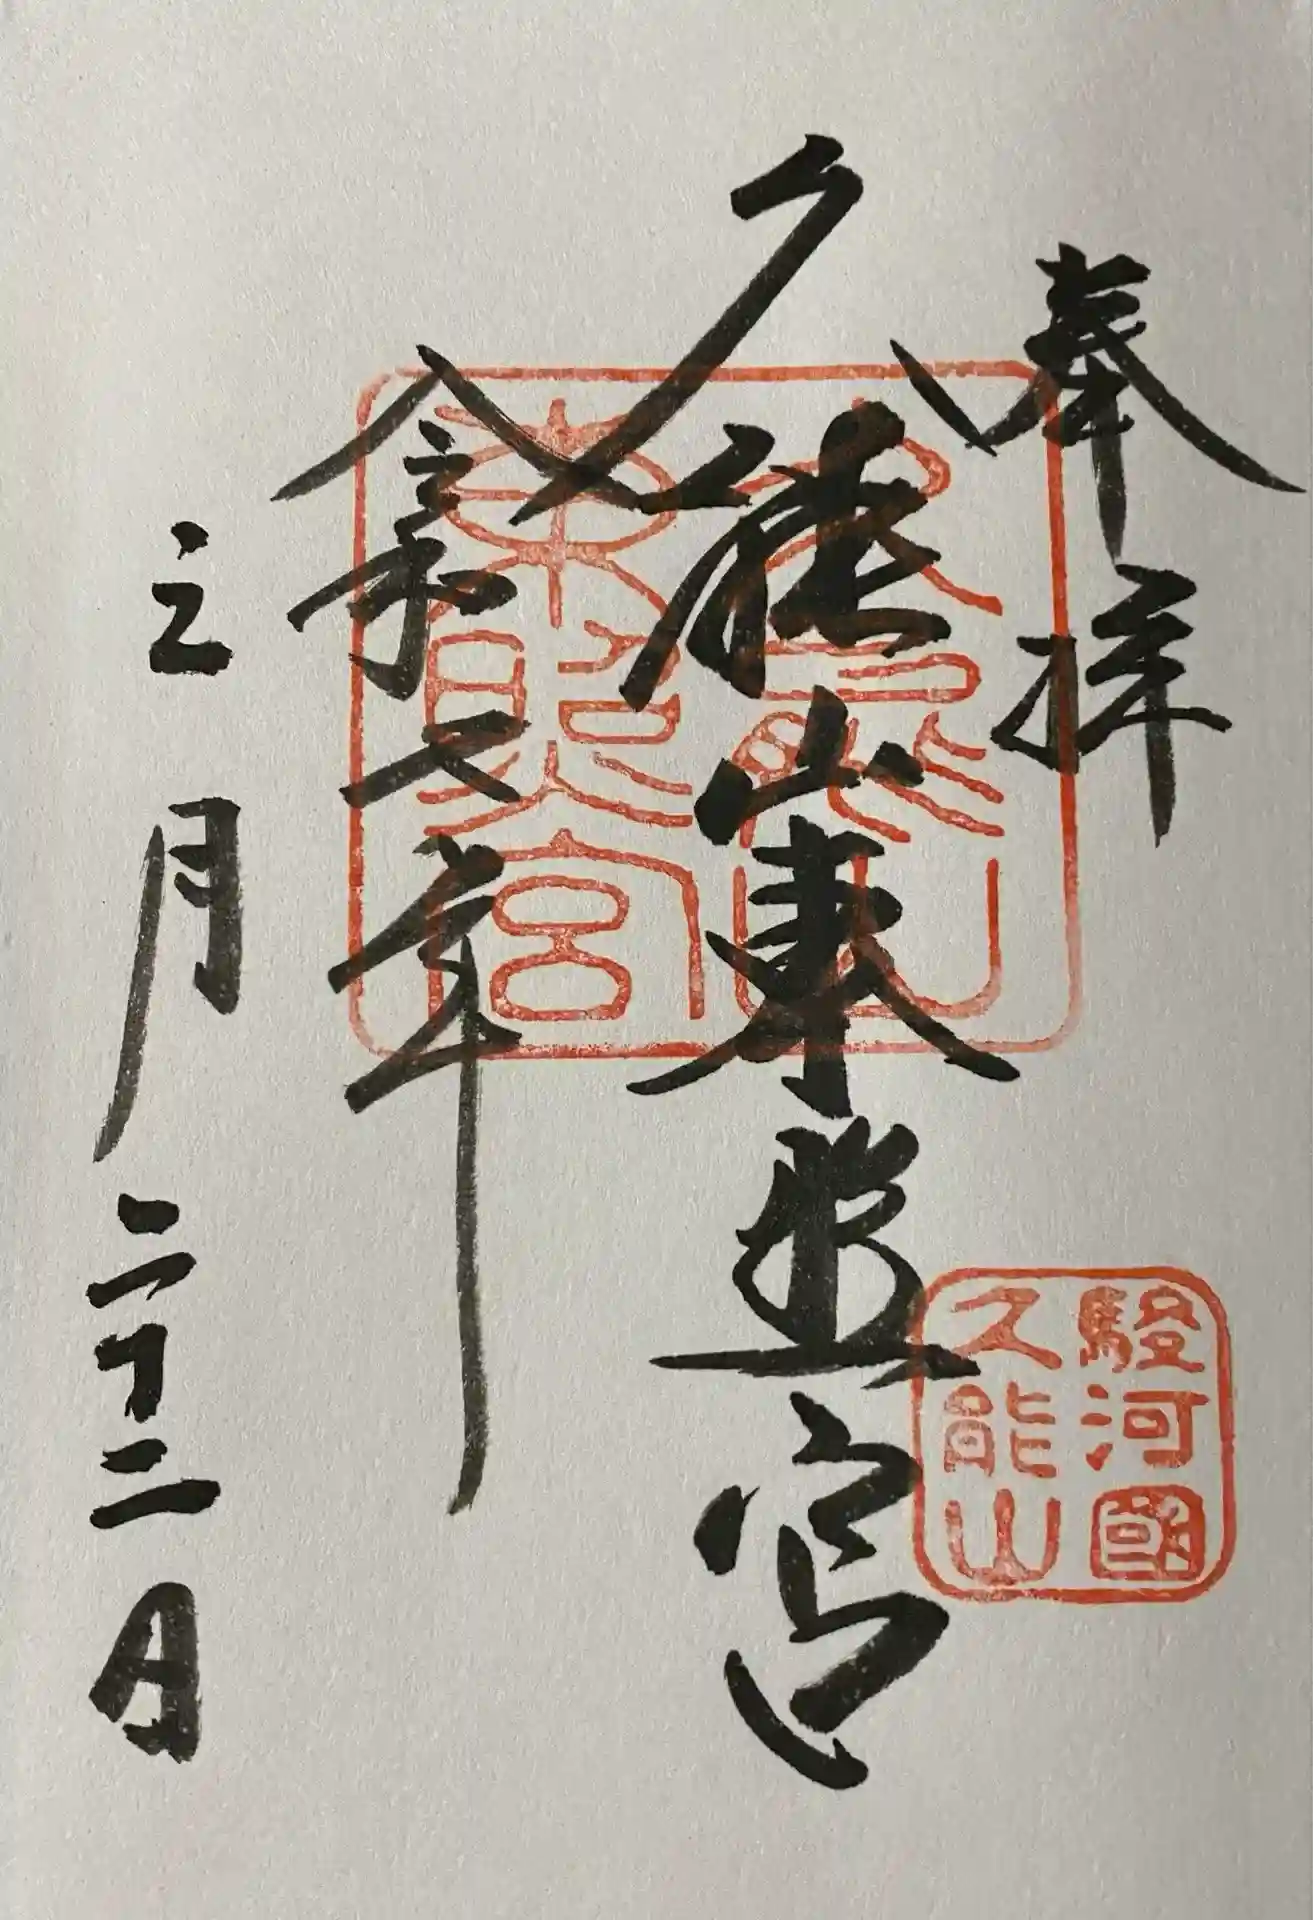 奉拝
久能山東照宮
令和七年
三月二十二日
久能山
東照宮
駿河國
久能山